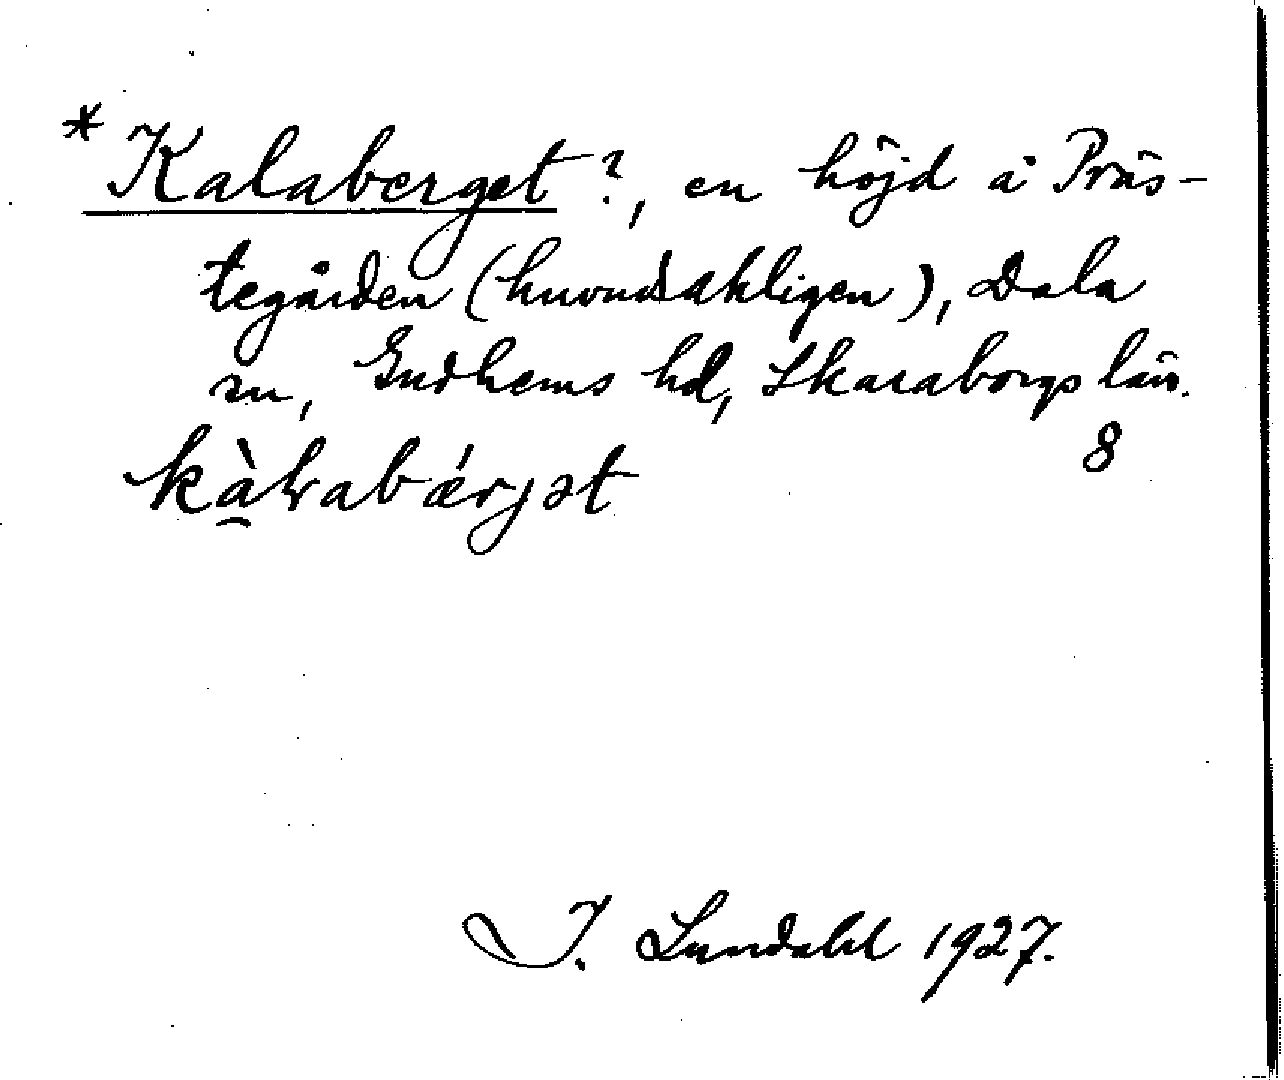 * Kalaberget?, en höjd å Präs-
tegården (huvudsakligen), Dala
sn, Gudhems hd, Skaraborgs län.
8
kàlrabǽrjət
I. Lundahl 1927.